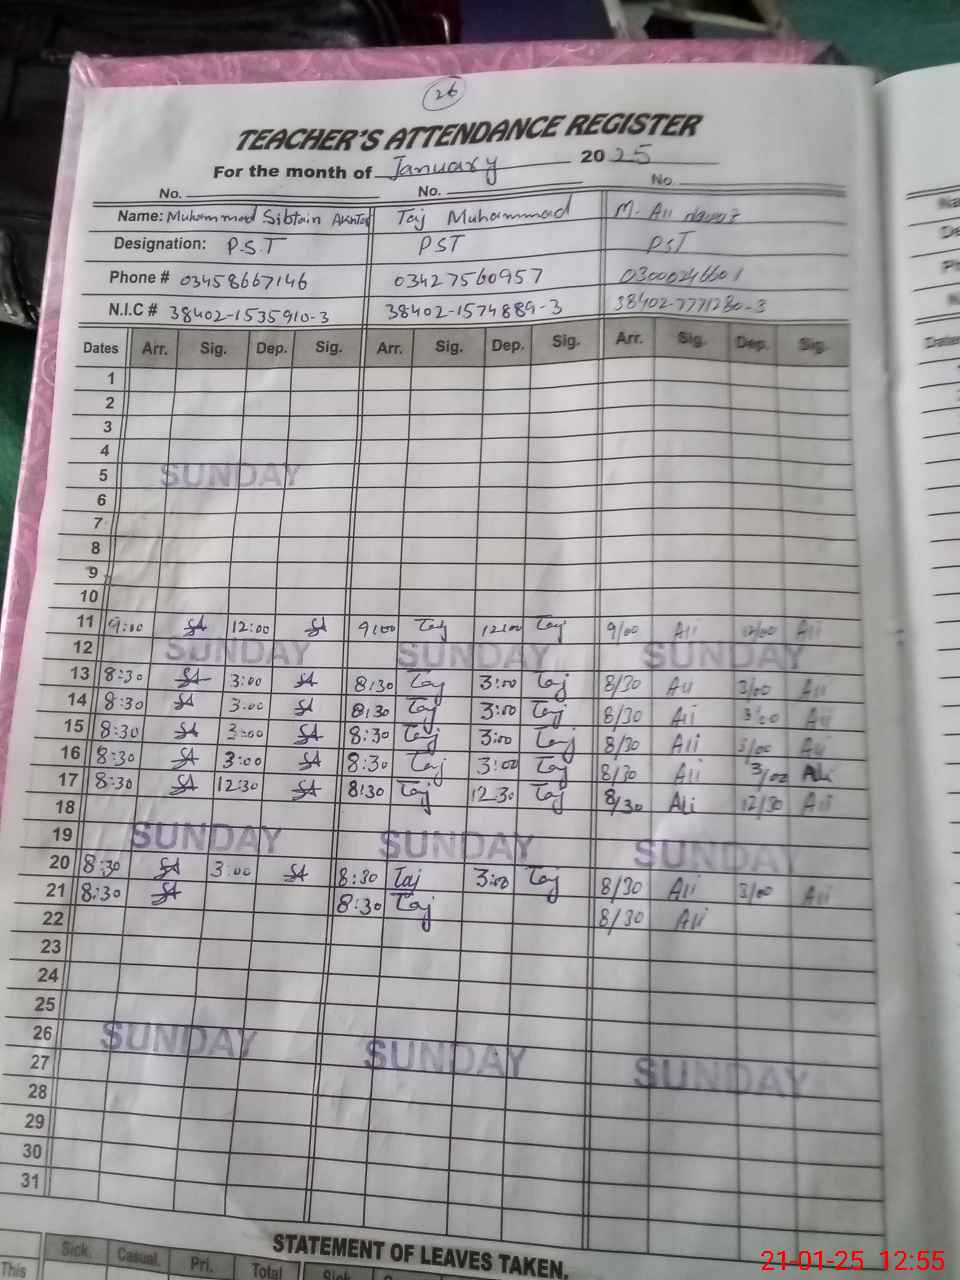 26
TEACHER'S ATTENDANCE REGISTER
For the month of January 2025
No. No. No.
Name: Muhammad Sibtain Akhtar Taj Muhammad M. Ali Nawaz
Designation: P.S.T PST PST
Phone # 03458667146 03427560957 03000246601
N.I.C # 38402-1535910-3 38402-1574889-3 38402-7771280-3
Dates Arr. Sig. Dep. Sig. Arr. Sig. Dep. Sig. Arr. Sig. Dep. Sig.
1
2
3
4
5 SUNDAY
6
7
8
9
10
11 9:00 SA 12:00 SA 9:00 Taj 12:00 Taj 9/00 Ali 12/00 Ali
12 SUNDAY SUNDAY SUNDAY
13 8:30 SA 3:00 SA 8:30 Taj 3:00 Taj 8/30 Ali 3/00 Ali
14 8:30 SA 3:00 SA 8:30 Taj 3:00 Taj 8/30 Ali 3:00 Ali
15 8:30 SA 3:00 SA 8:30 Taj 3:00 Taj 8/30 Ali 3/00 Ali
16 8:30 SA 3:00 SA 8:30 Taj 3:00 Taj 8/30 Ali 3/00 Ali
17 8:30 SA 12:30 SA 8:30 Taj 12:30 Taj 8/30 Ali 12/30 Ali
18
19 SUNDAY SUNDAY SUNDAY
20 8:30 SA 3:00 SA 8:30 Taj 3:00 Taj 8/30 Ali 3/00 Ali
21 8:30 SA 8:30 Taj 8/30 Ali
22
23
24
25
26 SUNDAY SUNDAY SUNDAY
27
28
29
30
31
STATEMENT OF LEAVES TAKEN.
Sick. Casual. Pri. Total Sick
This
21-01-25 12:55